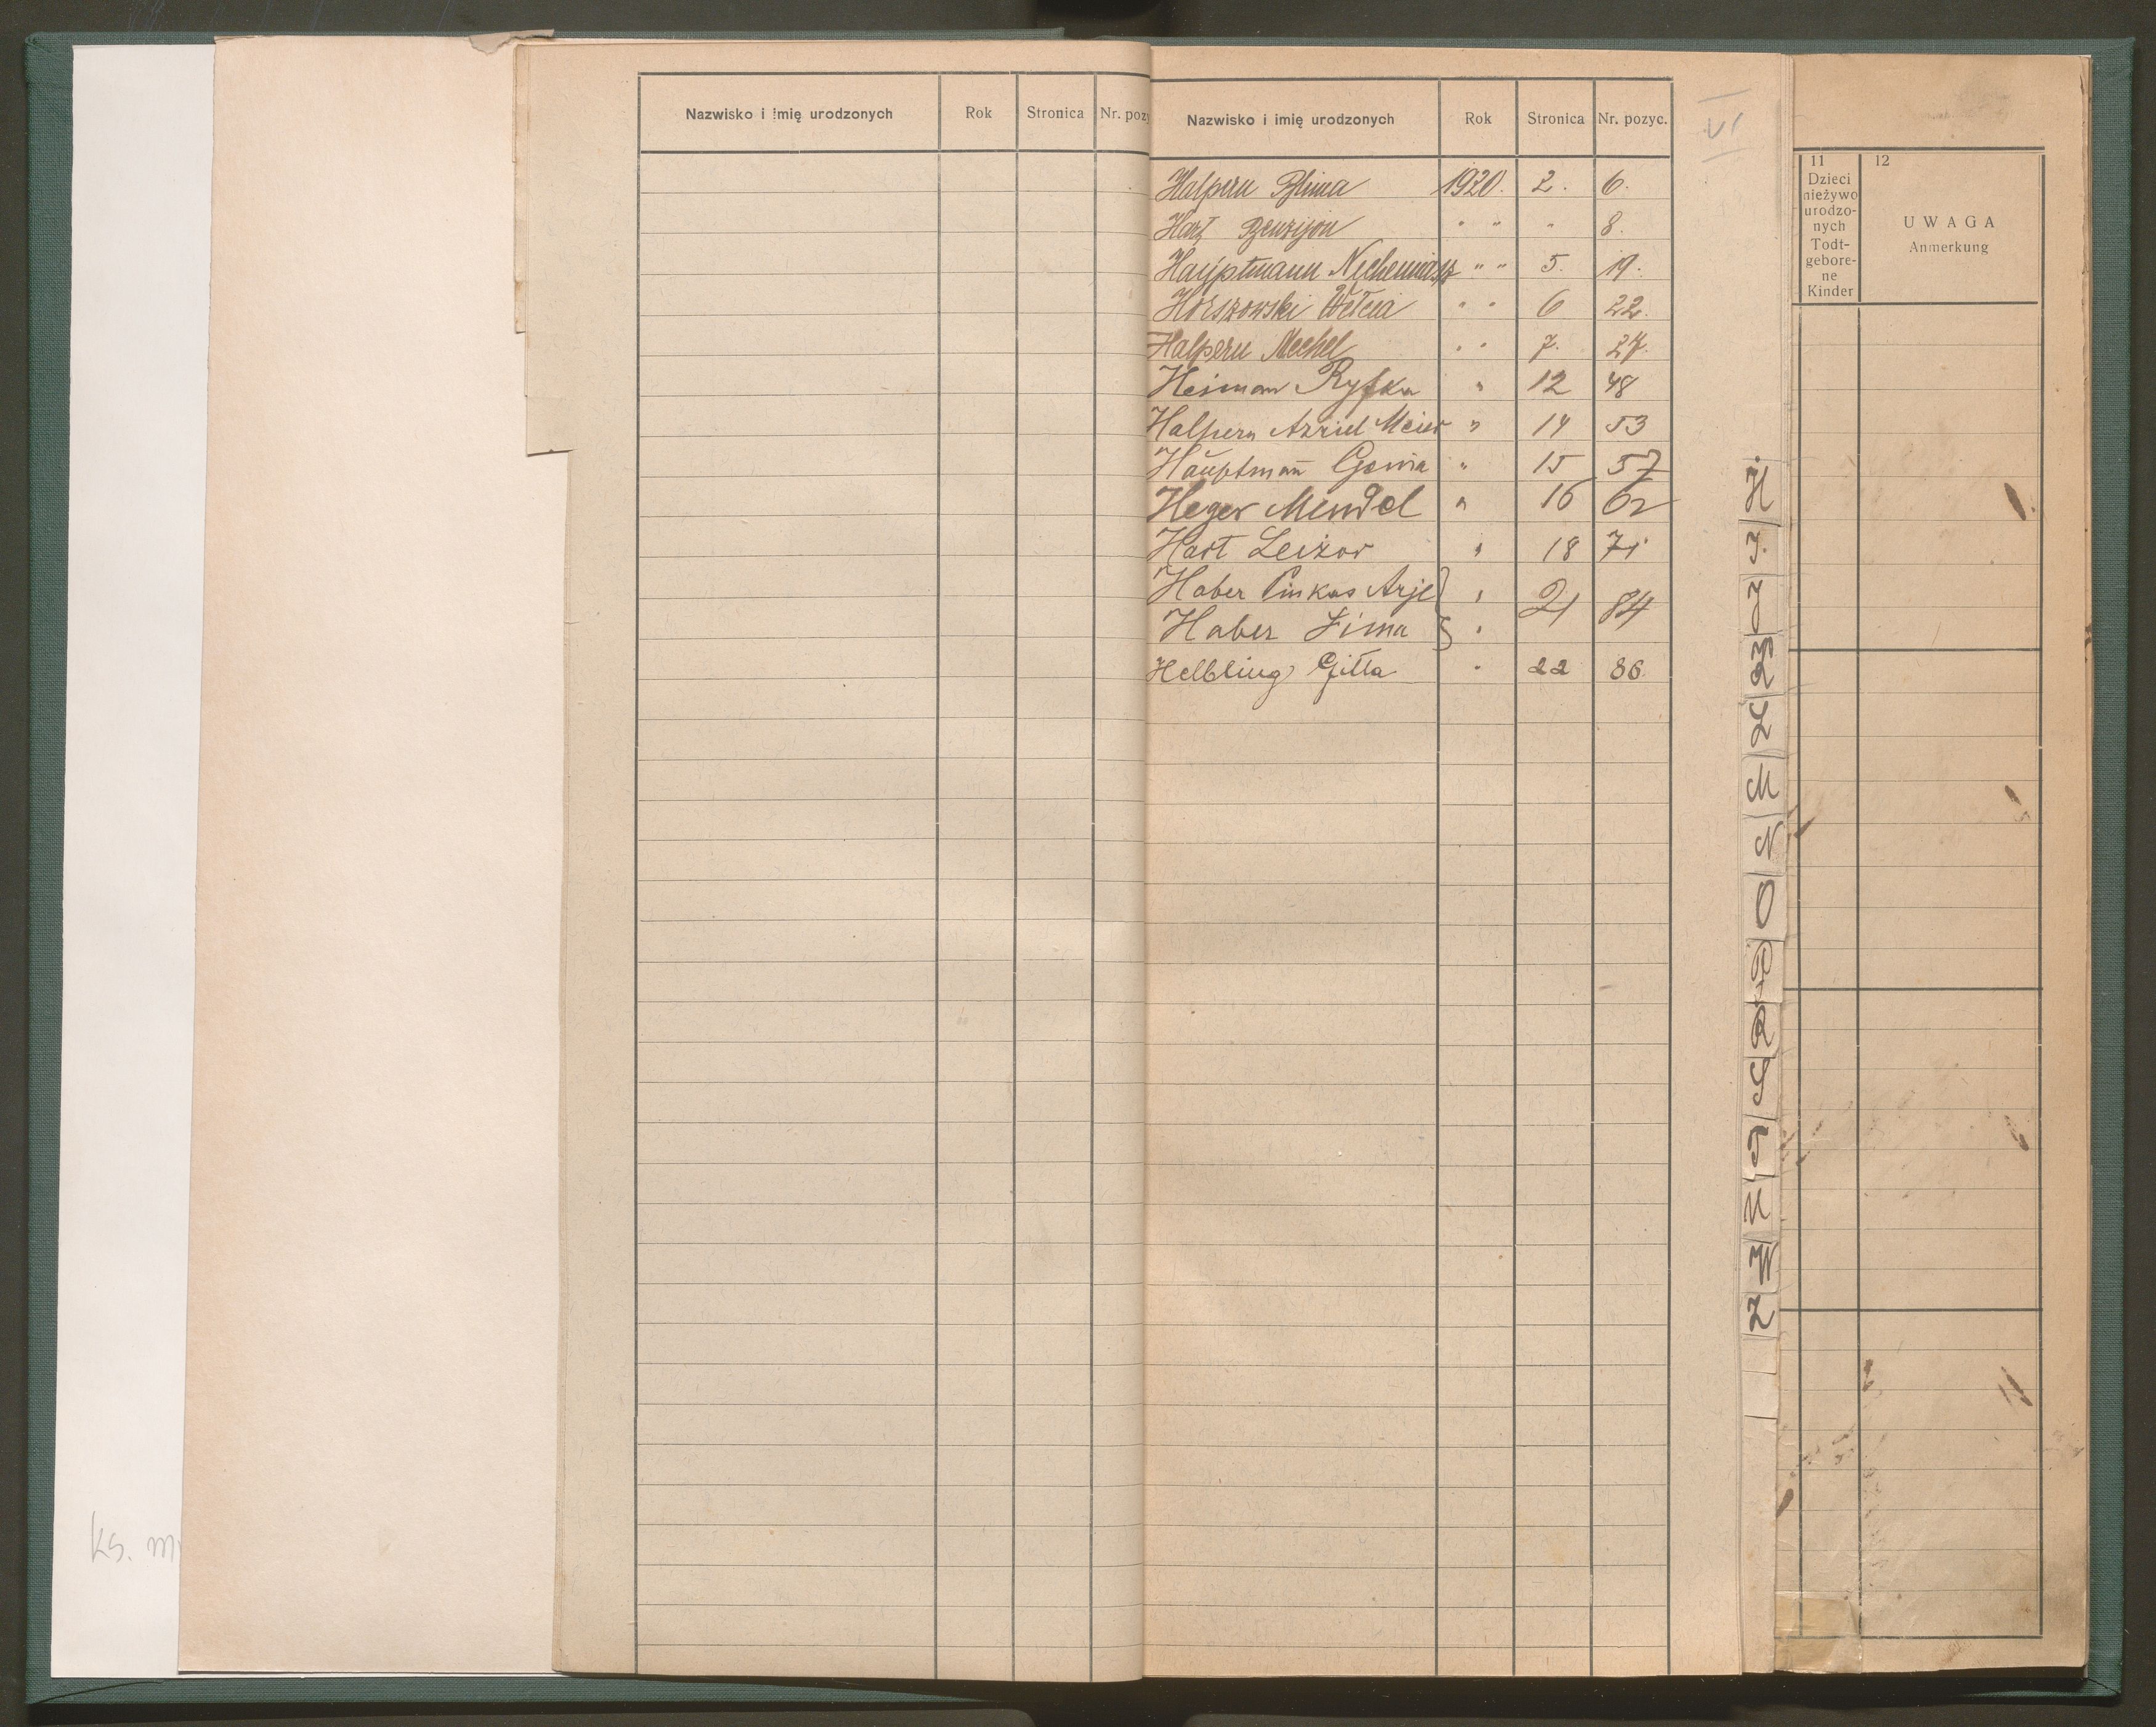 Nazwisko i imię urodzonych Rok Stronica Nr. pozy
Nazwisko i imię urodzonych Rok Stronica Nr. pozyc.
VI
Halpern Blima 1920. 2. 6.
Hart Benzijon " " " 8.
Hauptmann Nechemiasz " " 5. 19.
Horszowski " " 6 22.
Halpern Mechel " " 7. 27.
Heiman Ryfka " 12 48
Halpern Azriel Meier " 14 53
Hauptman Genia " 15 57
Heger Mendel " 16 62
Hart Leizor " 18 71
Haber Pinkas Arje } " 21 84
Haber Zima } "
Helbling Gitla " 22 86
11
Dzieci
nieżywo
urodzo-
nych
Todt-
gebore-
ne
Kinder
12
UWAGA
Anmerkung
H
I.
J
K
L
M
N
O
P
R
S
T
U
W
Z
ks. m